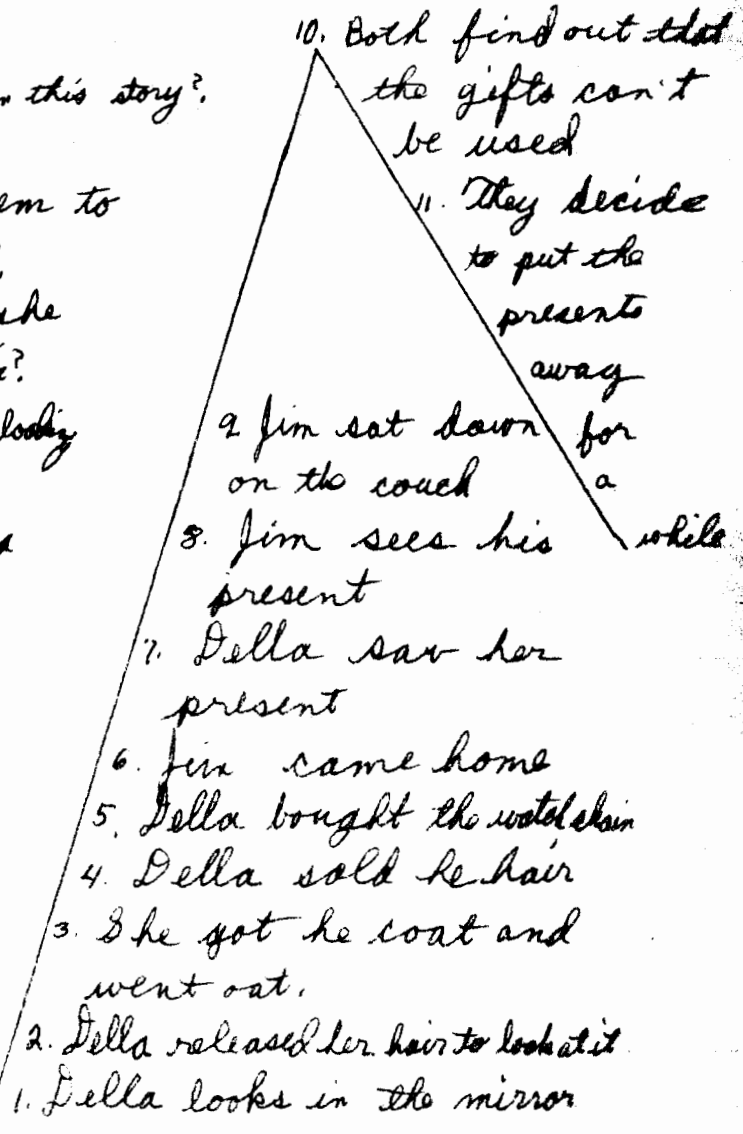 this story?.
em to
she
10. Both find out that
the gifts can't
be used
11. They decide
to put the
presents
away
for
a
while
9 Jim sat down
on the couch
8. Jim sees his
present
7. Della saw her
present
6. Jim came home
5. Della bought the watch chain
4. Della sold he hair
3. She got he coat and
went out.
2. Della released her hair to look at it
1. Della looks in the mirror